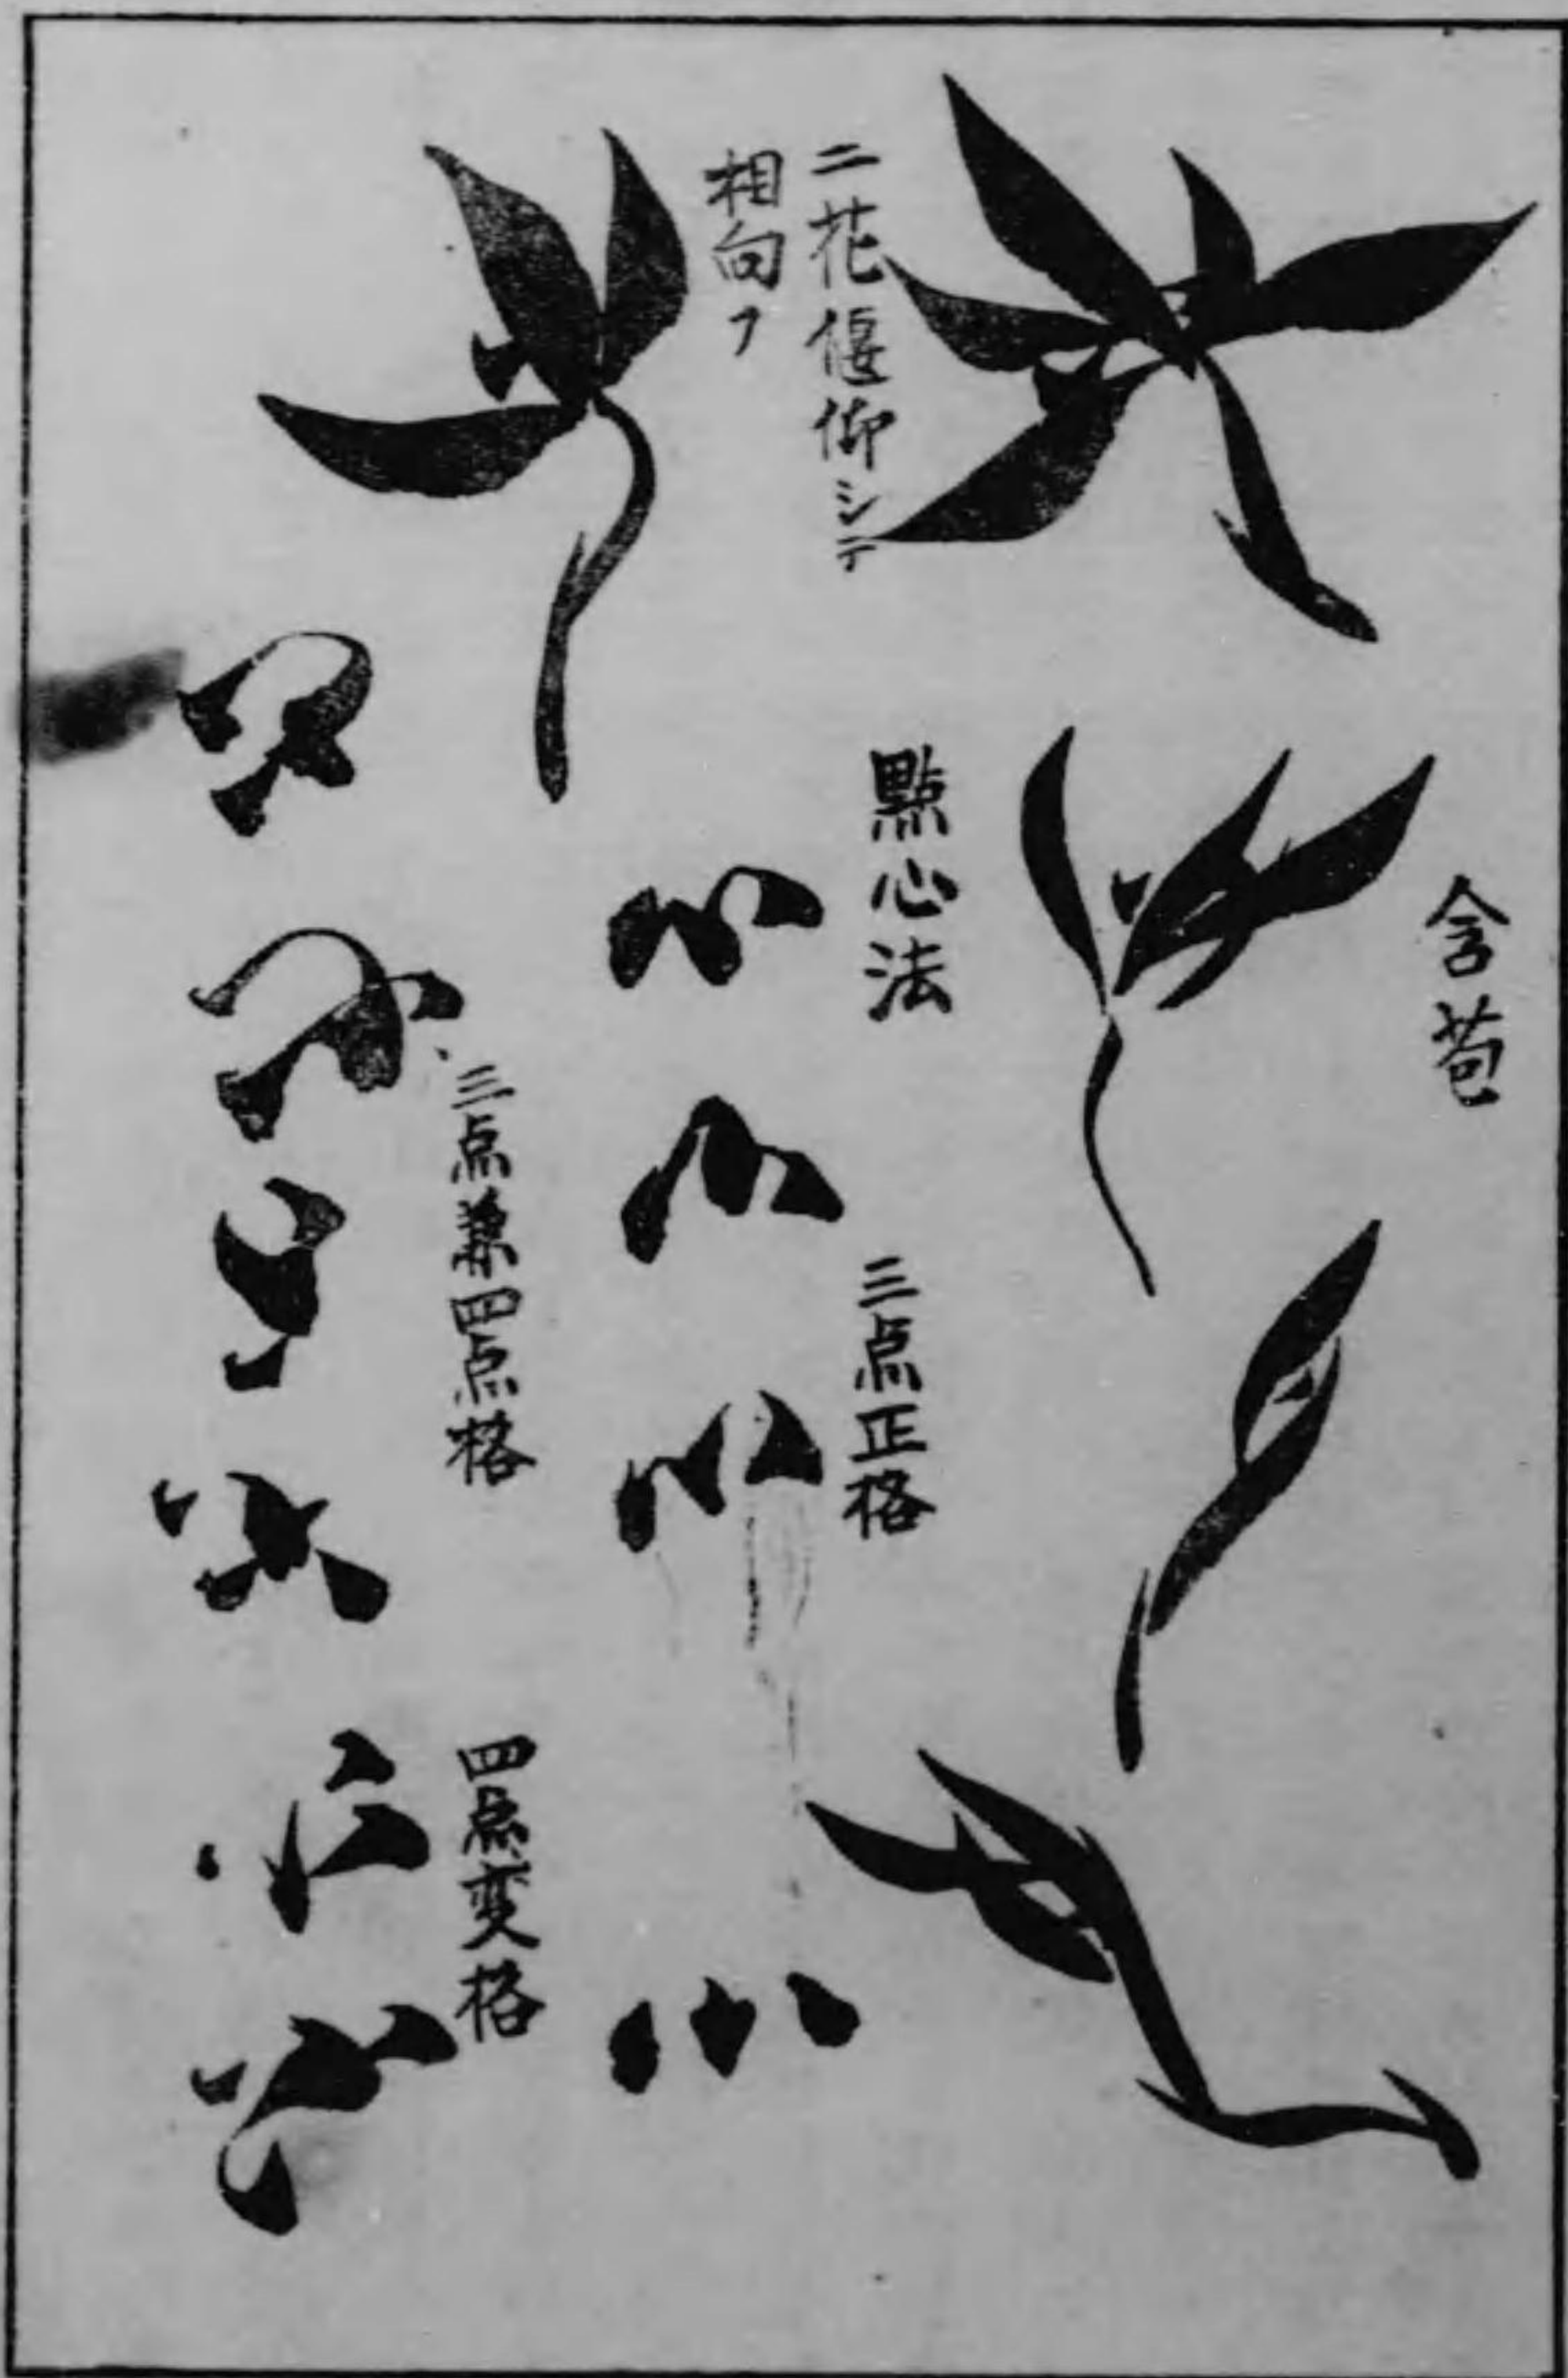 二花偃仰シテ
相向フ
含苞
點心法
三点正格
三点兼四点格
四点変格